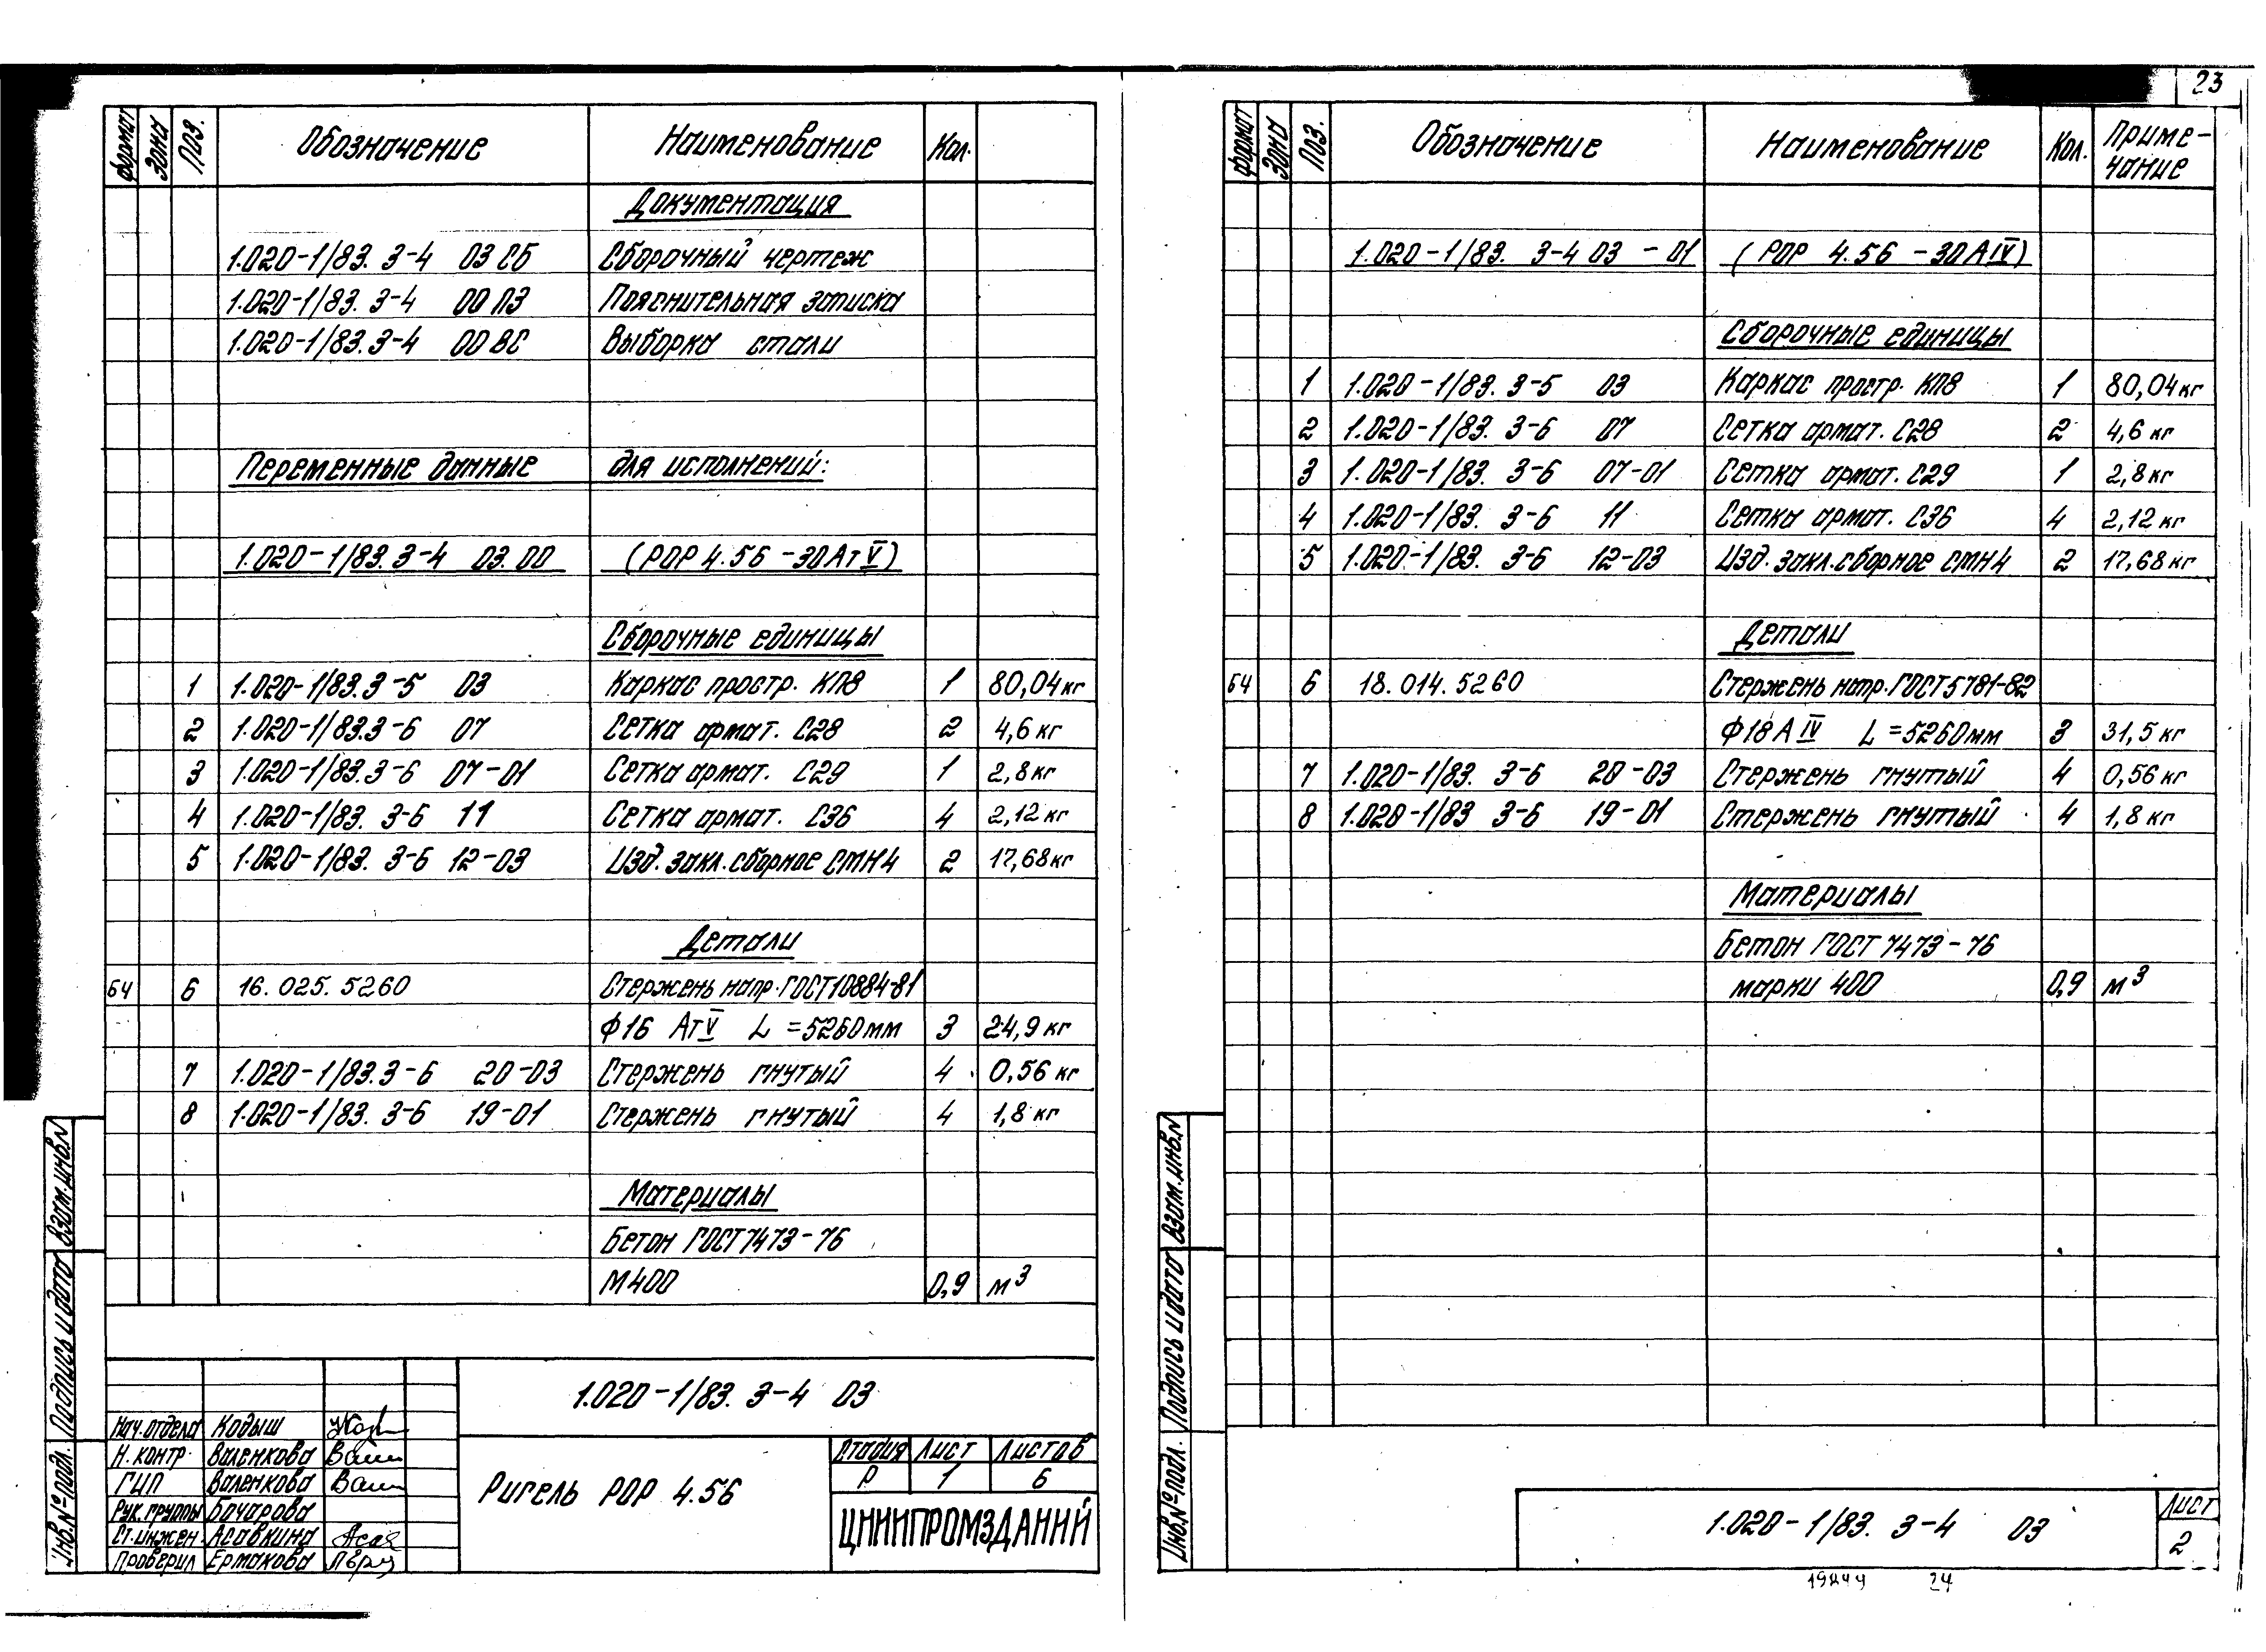 23
формат Зона Поз. Обозначение Наименование Кол.
Документация
1.020-1/83. 3-4 03 СБ Сборочный чертеж
1.020-1/83. 3-4 00 ПЗ Пояснительная записка
1.020-1/83. 3-4 00 ВС Выборка стали
Переменные данные для исполнений:
1.020-1/83. 3-4 03.00 (РОР 4.56 -30АтV)
Сборочные единицы
1 1.020-1/83. 3-5 03 Каркас простр. КП8 1 80,04кг
2 1.020-1/83.3-6 07 Сетка армат. С28 2 4,6 кг
3 1.020-1/83.3-6 07-01 Сетка армат. С29 1 2,8кг
4 1.020-1/83. 3-6 11 Сетка армат. С36 4 2,12кг
5 1.020-1/83. 3-6 12-03 Изд. закл. сборное СМН4 2 17,68кг
Детали
БЧ 6 16.025.5260 Стержень напр. ГОСТ10884-81
Ф16 АтV L =5260мм 3 24,9кг
7 1.020-1/83.3-6 20-03 Стержень гнутый 4 0,56 кг
8 1.020-1/83. 3-6 19-01 Стержень гнутый 4 1,8 кг
Материалы
Бетон ГОСТ7473-76
М400 0,9 м³
Взам.инв.N
Подпись и дата
Инв.№подл.
1.020-1/83. 3-4 03
Нач.отдела Кодыш
Н.контр. Валенкова
ГИП Валенкова
Рук.группы Бочарова
Ст.инжен. Асавкина
Проверил Ермакова
Ригель РОР 4.56
Стадия Лист Листов
Р 1 6
ЦНИИПРОМЗДАНИЙ
формат Зона Поз. Обозначение Наименование Кол. Приме-
чание
1.020-1/83. 3-4 03 -01 (РОР 4.56 -30АIV)
Сборочные единицы
1 1.020-1/83. 3-5 03 Каркас простр. КП8 1 80,04кг
2 1.020-1/83. 3-6 07 Сетка армат. С28 2 4,6 кг
3 1.020-1/83. 3-6 07-01 Сетка армат. С29 1 2,8кг
4 1.020-1/83. 3-6 11 Сетка армат. С36 4 2,12кг
5 1.020-1/83. 3-6 12-03 Изд. закл. сборное СМН4 2 17,68кг
Детали
БЧ 6 18.014.5260 Стержень напр. ГОСТ5781-82
Ф18АIV L =5260мм 3 31,5кг
7 1.020-1/83. 3-6 20-03 Стержень гнутый 4 0,56кг
8 1.020-1/83 3-6 19-01 Стержень гнутый 4 1,8 кг
Материалы
Бетон ГОСТ7473-76
марки 400 0,9 м³
Взам.инв.N
Подпись и дата
Инв.№подл.
1.020-1/83. 3-4 03
Лист
2
24